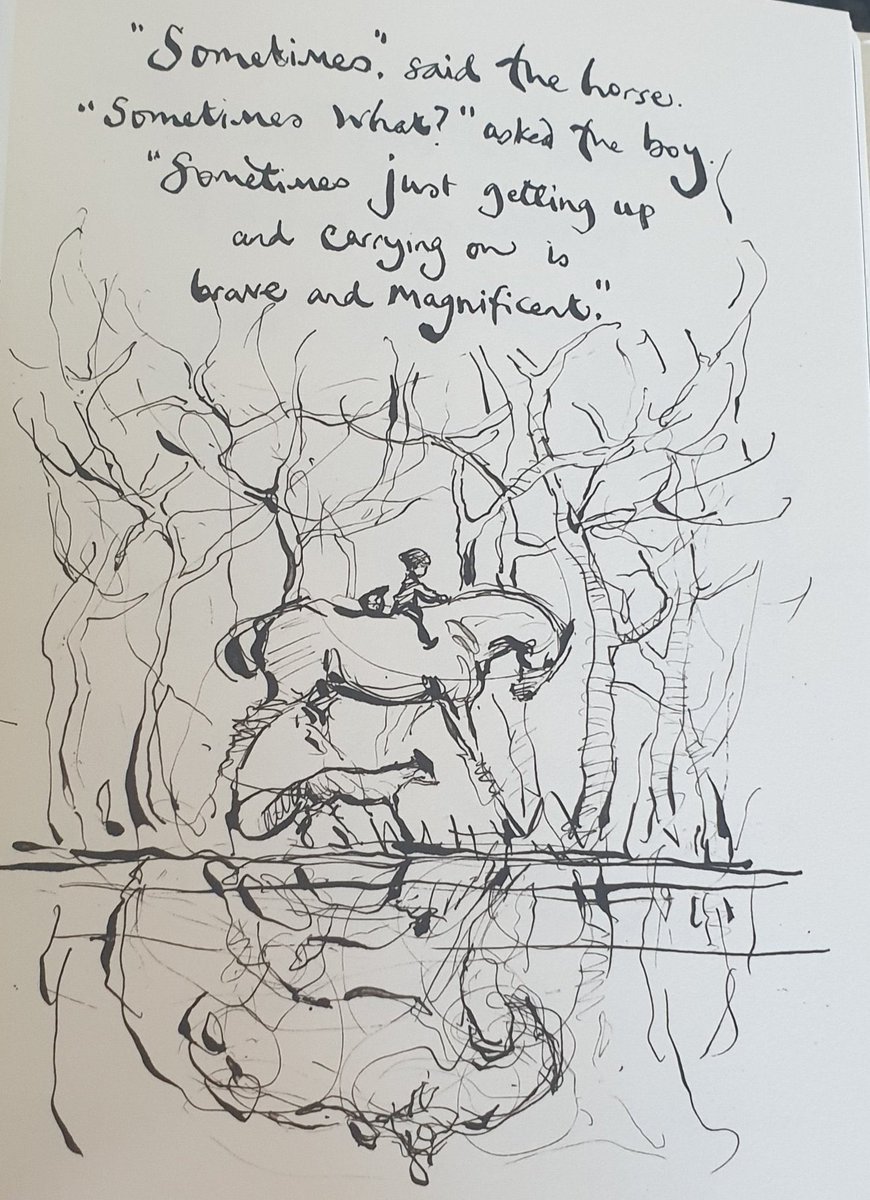 "Sometimes". said the horse.
"Sometimes what?" asked the boy.
"Sometimes just getting up
and carrying on is
brave and magnificent."